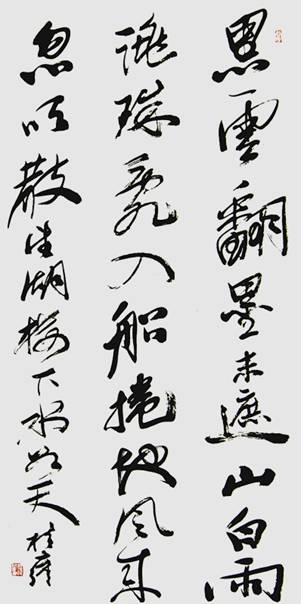 黑雲翻墨未遮山白雨
跳珠亂入船捲地風來
忽吹散望湖樓下水如天